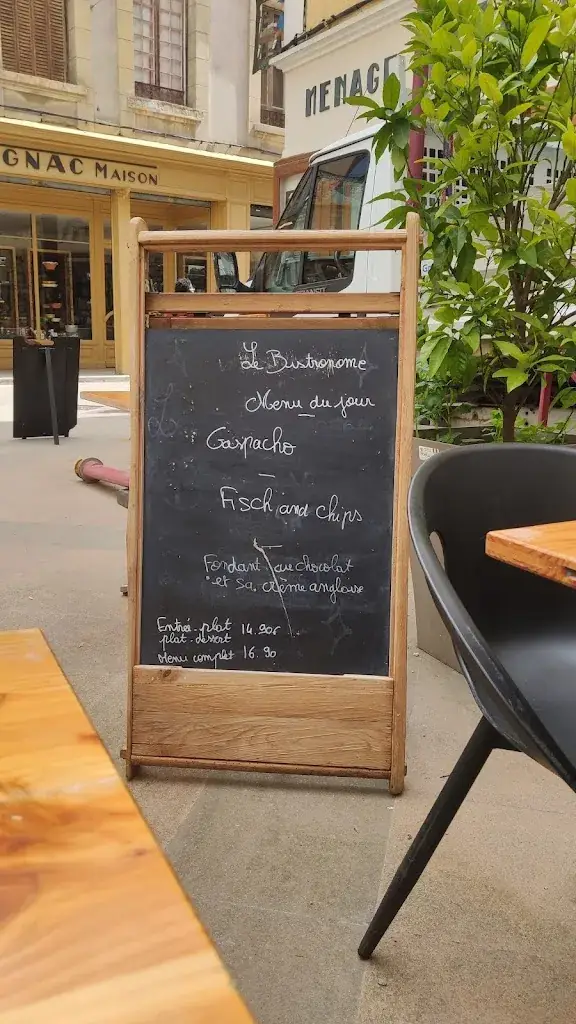 GNAC MAISON
MENAGE
TRANSIT
Le Bistronome
Menu du jour
Gaspacho
Fisch and chips
Fondant au chocolat
et sa crème anglaise
Entrée-plat 14.90€
plat-dessert
Menu complet 16.90